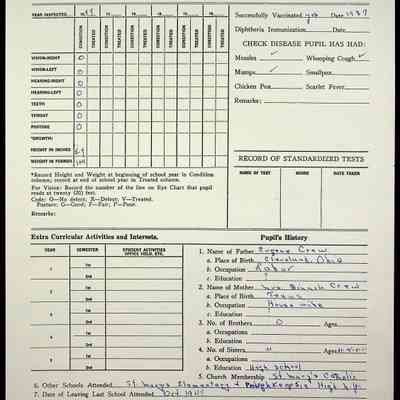 YEAR INSPECTED 19 19 19 19 19 19 19
Successfully Vaccinated yes Date 1937
Diphtheria Immunization Date
CONDITION TREATED CONDITION TREATED CONDITION TREATED CONDITION TREATED CONDITION TREATED CONDITION TREATED CONDITION TREATED
CHECK DISEASE PUPIL HAS HAD:
VISION-RIGHT O
Measles ✓ Whooping Cough ✓
VISION-LEFT O
Mumps ✓ Smallpox
HEARING-RIGHT O
HEARING-LEFT O
Chicken Pox Scarlet Fever
TEETH O
Remarks:
THROAT O
POSTURE O
*GROWTH:
HEIGHT IN INCHES
WEIGHT IN POUNDS
RECORD OF STANDARDIZED TESTS
NAME OF TEST SCORE DATE TAKEN
*Record Height and Weight at beginning of school year in Condition
column; record at end of school year in Treated column.
For Vision: Record the number of the line on Eye Chart that pupil
reads at twenty (20) feet.
Code: O—No defect; X—Defect; V—Treated.
Posture: G—Good; F—Fair; P—Poor.
Remarks:
Extra Curricular Activities and Interests.
YEAR SEMESTER STUDENT ACTIVITIES
OFFICE HELD, ETC.
1 1st
2nd
2 1st
2nd
3 1st
2nd
4 1st
2nd
Pupil's History
1. Name of Father Eugene Crew
a. Place of Birth Cleveland, Ohio
b. Occupation Labor
c. Education ?
2. Name of Mother Mrs. Crew
a. Place of Birth Texas
b. Occupation House wife
c. Education ?
3. No. of Brothers O Ages
a. Occupation
b. Education
4. No. of Sisters Ages
a. Occupation
b. Education High School
5. Church Membership St. Mary's Catholic
6. Other Schools Attended St Marys Elementary + Poughkeepsie High
7. Date of Leaving Last School Attended Oct.